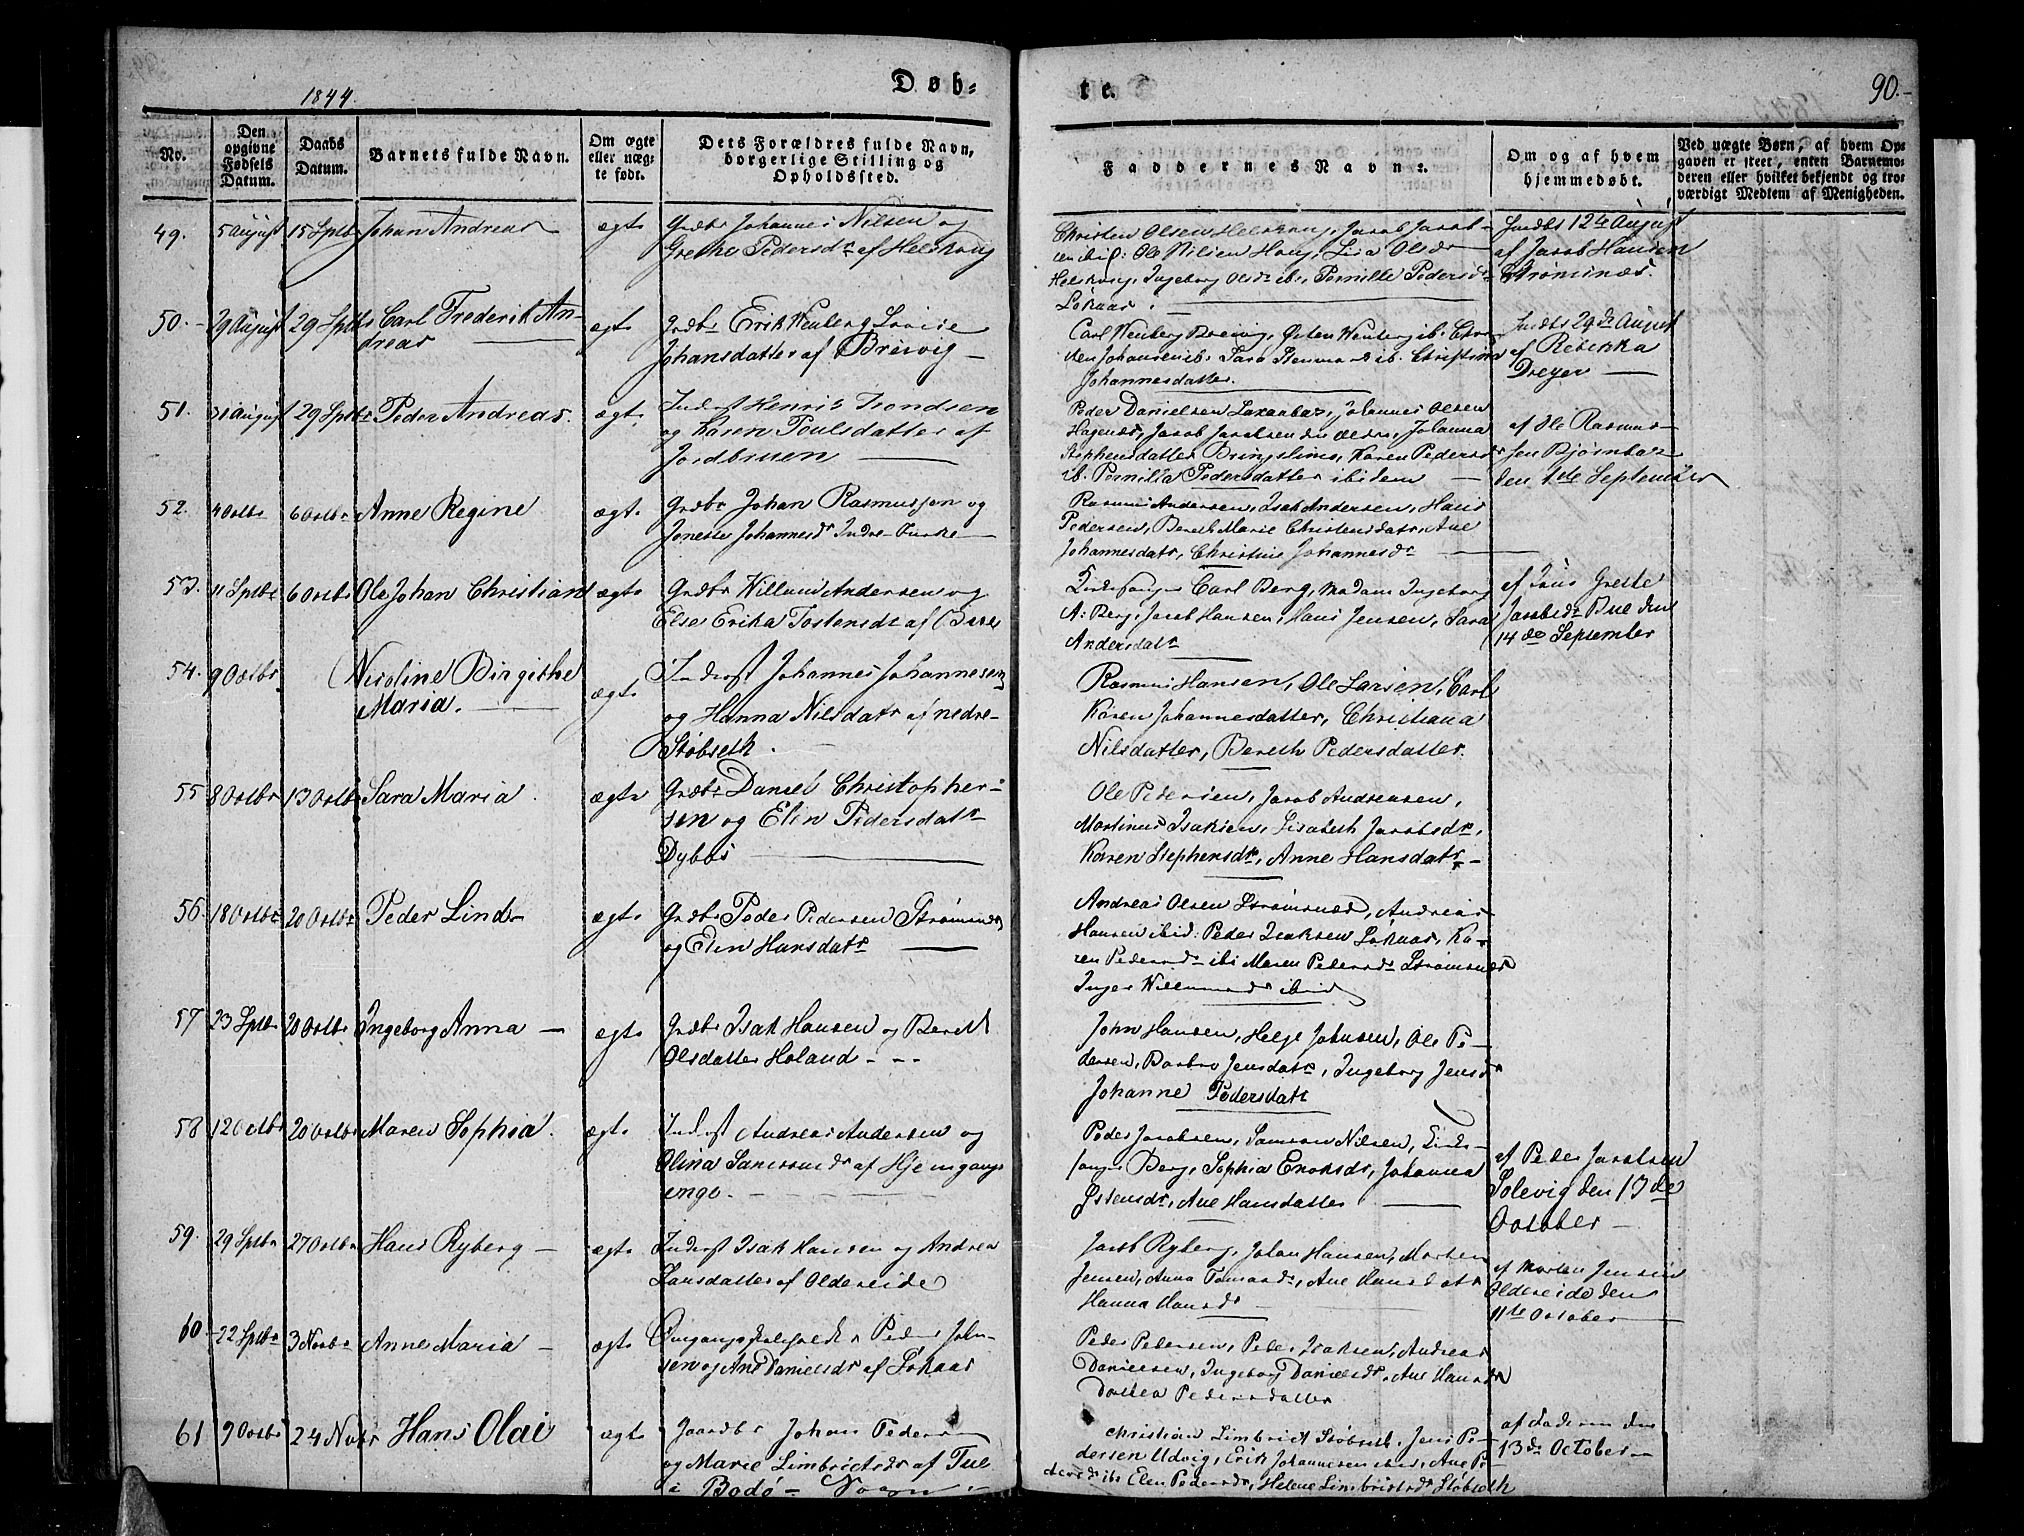 1844.
Døb-
te.
90.-
No.
Den opgivne Fødsels Datum.
Daabs Datum.
Barnets fulde Navn.
Om ægte eller uæg-te født.
Dets Forældres fulde Navn, borgerlige Stilling og Opholdssted.
Faddernes Navne.
Om og af hvem hjemmedøbt.
Ved uægte Børn, af hvem Op-gaven er skeet, enten Barnemo-deren eller hvilket bekjendt og tro-værdigt Medlem af Menigheden.
49. 5 August 15 Sptbr Johan Andreas ægte Grdbr Johannes Nilsen og
Grethe Pedersdr af
Christen Olsen Jacob Jacob-
sen ibid: Ole Nilsen Haug, Lisa Olsdr
Ingeborg Olsdr ib. Pernille Pedersdr
Løkaas.
12te August
af Jacob Hansen
Strømsnæs
50.- 29 August 29 Sptbr Carl Frederik An-
dreas
ægte Grdbr Erik Wenberg Lovise
Johansdatter af Breivig
Carl Wenberg Breivig, Østen Wenberg ib.
Johansen ib. Sara ib. Christina
Johannesdatter.
29de August
af Rebekka
Dreyer
51. 31 August 29 Sptbr Peder Andreas. ægte Inderst Henrik Trondsen
og Karen Poulsdatter af
Jordbruen
Peder Danielsen Johannes Olsen
Hagenæs, Jacob Jacobsen den ældre, Johanna
Stephensdatter Karen Pedersdr
ib. Pernilla Pedersdatter ibidem
af Ole Rasmus-
sen Bjørnbak
den 1ste September
52. 4 Octbr 6 Octbr Anne Regine ægte Grdbr Johan Rasmussen og
Jonette Johannesdr Indre
Rasmus Andersen, Isak Andersen, Hans
Pedersen, Bereth Marie Christensdatr, Ane
Johannesdatr, Christine Johannesdr
53. 11 Sptbr 6 Octbr Ole Johan Christian ægte Grdbr Willum Andersen og
Else Erika Tostensdr af
Carl Berg, Madam Ingeborg
A: Berg, Jacob Hansen, Hans Jensen, Sara
Andersdatr
af Grethe
Jacobsdr den
14de September
54. 9 Octbr Nicoline Birgithe
Maria.
ægte Inderst Johannes Johannesen
og Hanna Nilsdatr af nedre
Støbseth.
Rasmus Hansen, Ole Larsen, Carl
Karen Johannesdatter, Christiana
Nilsdatter, Bereth Pedersdatter.
55 8 Octbr 13 Octbr Sara Maria. ægte Grdbr Daniel Christopher-
sen og Elen Pedersdatr
Dybos
Ole Pedersen, Jacob Andreasen,
Martinus Isaksen, Lisabeth Jacobsdr,
Karen Stephensdr, Anne Hansdatr
56 18 Octbr 20 Octbr Peder Lind ægte Grdbr Peder Pedersen Strømsnæs
og Elen Hansdatr
Andreas Olsen Strømsnæs, Andreas
Hansen ibid: Peder Isaksen Løkaas, Ka-
ren Pedersdr ib: Maren Pedersdr Strømsnæs
Inger Willumsdr ibid
57 23 Sptbr 20 Octbr Ingeborg Anna ægte Grdbr Isak Hansen og Bereth
Olsdatter Holand
John Hansen, Helge Johnsen, Ole Pe-
dersen, Barbro Jensdatr, Ingeborg Jensdr
Johanne Pedersdatr
58 12 Octbr 20 Octbr Maren Sophia. ægte Inderst Andreas Andersen og
Olina af
enge.
Peder Jacobsen, Nilsen,
Berg, Sophia Enoksdr, Johanna
Østensdr, Ane Hansdatter
af Peder Jacobsen
Solevig den 13de
October
59. 29 Sptbr 27 Octbr Hans Ryberg ægte Inderst Isak Hansen og Andrea
Hansdatter af Oldereide
Jacob Ryberg, Johan Hansen, Morten
Jensen, Anna Ane Hansdatr
Hanna Hansdr
af Morten Jensen
Oldereide den
11te October
60 22 Sptbr 3 Novbr Anne Maria ægte Omgangsskoleholder Peder John-
sen og Ane Danielsdr af Løkaas
Peder Pedersen, Peder Isaksen, Andreas
Danielsen, Ingeborg Danielsdr, Ane Hansdr
Dorthea Pedersdatter
61 9 Octbr 24 Novbr Hans Olai ægte Gaardbr Johan Peders
og Marie Limbrichtsdr af Tue
i Bodø Sogn
Christian Limbricht Støbseth, Jens Pe-
dersen Udvig, Erik Johannesen Ane Pe-
dersdr ib: Elen Pedersdr, Helene Limbrichtsdr Støbseth
af Faderen den
13de October